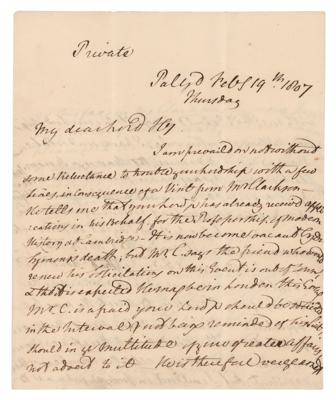 Private
Pal Yd Feby 19th 1807
Thursday
My dear Lord
I am prevailed on not without
some Reluctance to trouble your Lordship with a few
lines in consequence of a Visit from Mr Clarkson
He tells me that your Lordp has already received appli
cations in his Behalf for the Professorship of modern
History at Cambridge. It is now become vacant by
Symons's death, but Mr C. says the friend who would
renew his solicitations on this Event is out of Town
& tho he is expected he may be in London this
Mr C. is afraid your Lordp should be
in the Interval, and begs reminded of his
should in ye Multitude of your greater affairs
not advert to it He is therefore very